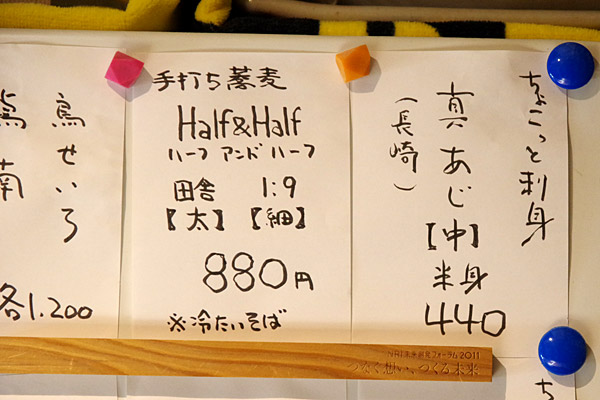 鳥せいろ
南
各1.200
手打ち蕎麦
Half&Half
ハーフ アンド ハーフ
田舎 1:9
【太】【細】
880円
※冷たいそば
ちょこっと刺身
真あじ【中】半身
440
(長崎)
NRI未来創発フォーラム2011
つなぐ想い、つくる未来
ち